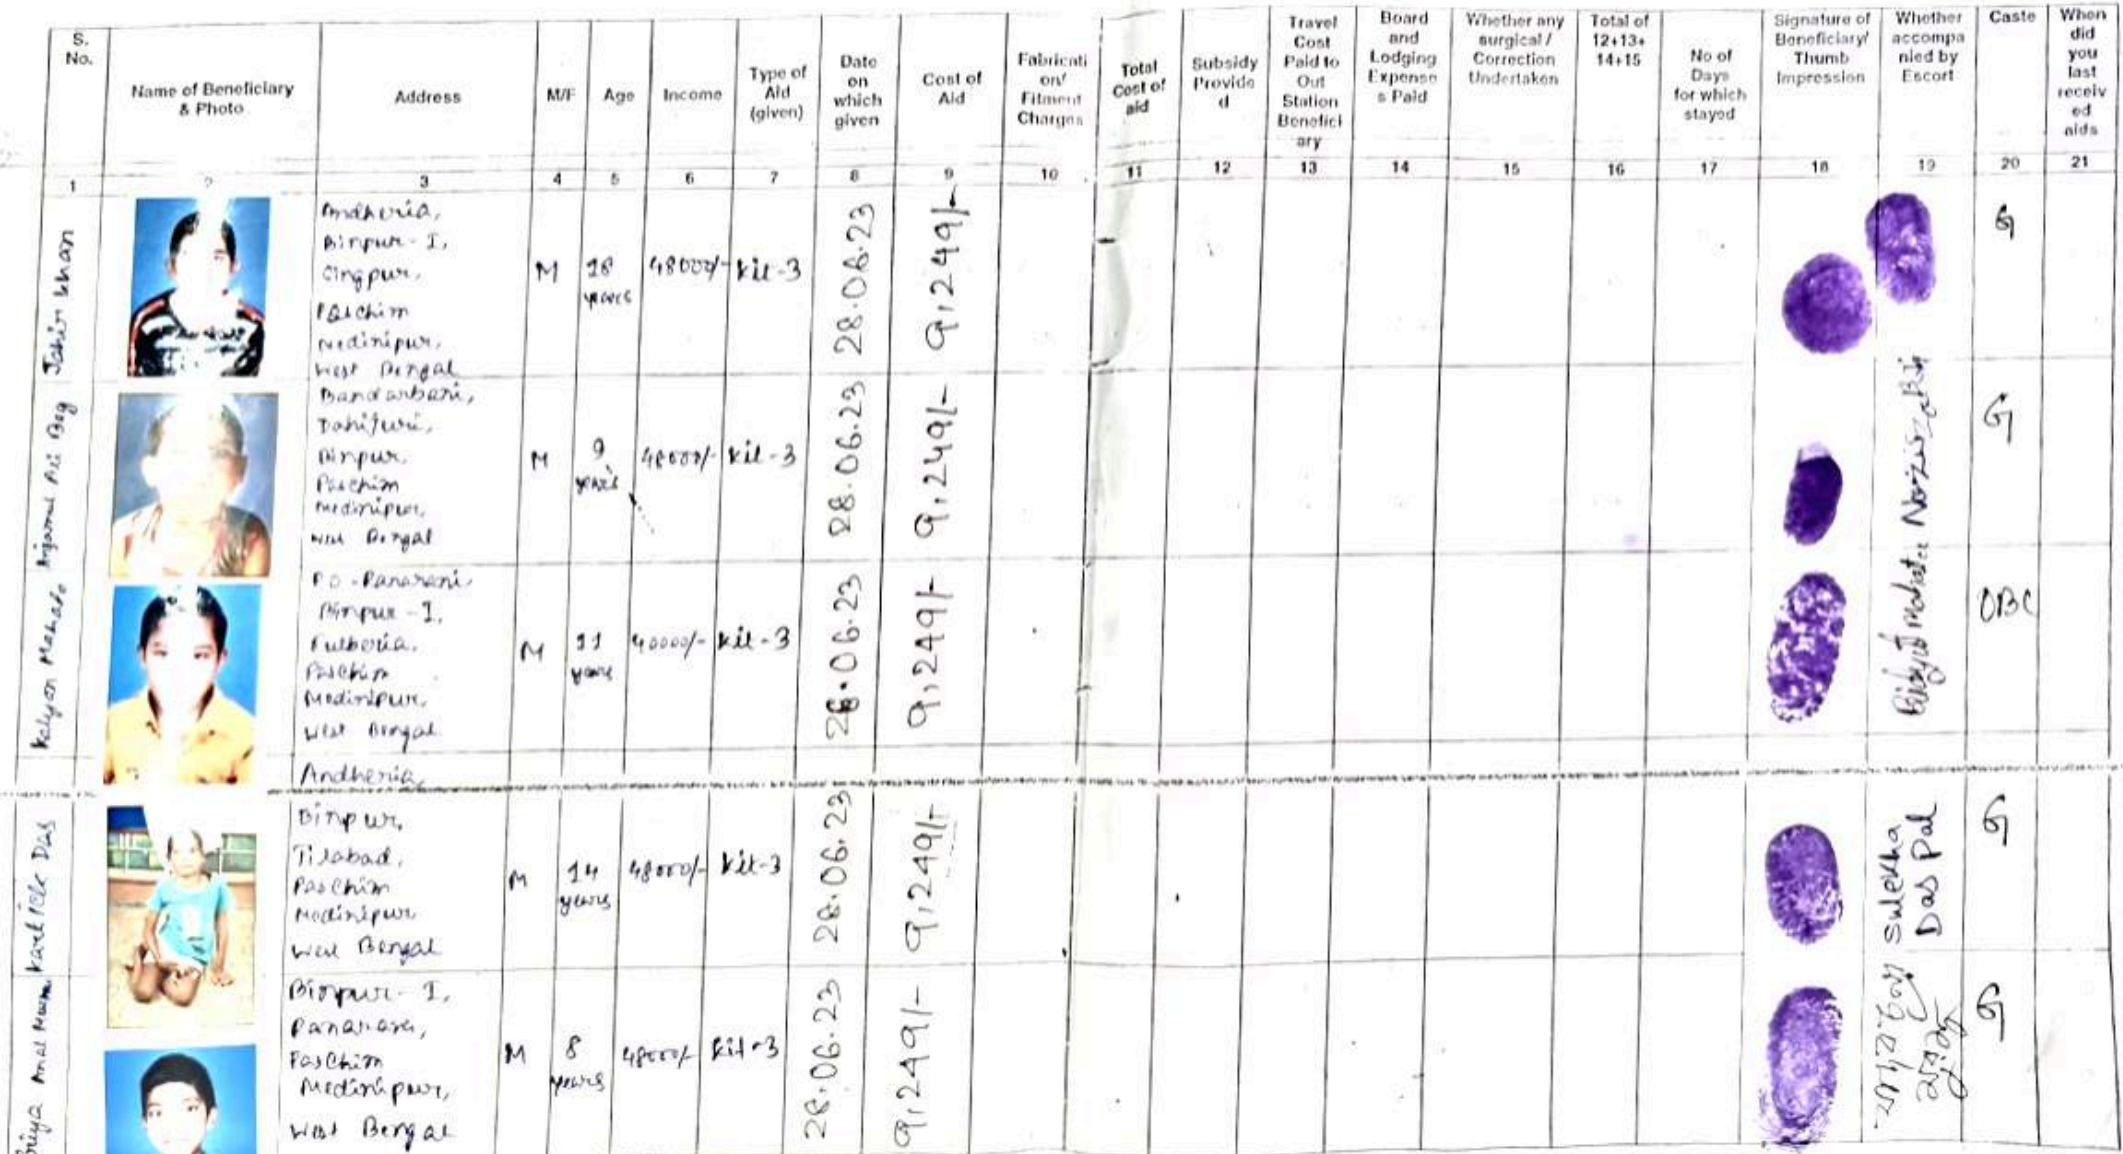 S. No.
Name of Beneficiary & Photo
Address
M/F
Age
Income
Type of Aid (given)
Date on which given
Cost of Aid
Fabricati on/ Fitment Charges
Total Cost of aid
Subsidy Provide d
Travel Cost Paid to Out Station Benefici ary
Board and Lodging Expense s Paid
Whether any surgical / Correction Undertaken
Total of 12+13+ 14+15
No of Days for which stayed
Signature of Beneficiary/ Thumb Impression
Whether accompa nied by Escort
Caste
When did you last receiv ed aids
1 2 3 4 5 6 7 8 9 10 11 12 13 14 15 16 17 18 19 20 21
Jahir khan
Andheria,
Binpur-I,
Paschim
Medinipur,
West Bengal
M
18 years
48000/-
kit-3
28.06.23
9,249/-
G
Ali Beg
Bandarbani,
Dahijuri,
Binpur,
Paschim
Medinipur,
West Bengal
M
9 years
48000/-
kit-3
28.06.23
9,249/-
G
Kalyan Mahato
P.O-
Binpur-I,
Fulberia,
Paschim
Medinipur,
West Bengal
M
11 years
40000/-
kit-3
28.06.23
9,249/-
Mahata
OBC
Das
Andheria,
Binpur,
Tilabad,
Paschim
Medinipur
West Bengal
M
14 years
48000/-
kit-3
28.06.23
9,249/-
Sulekha
Das Pal
G
Binpur-I,
Paschim
Medinipur,
West Bengal
M
8 years
48000/-
kit-3
28.06.23
9,249/-
G